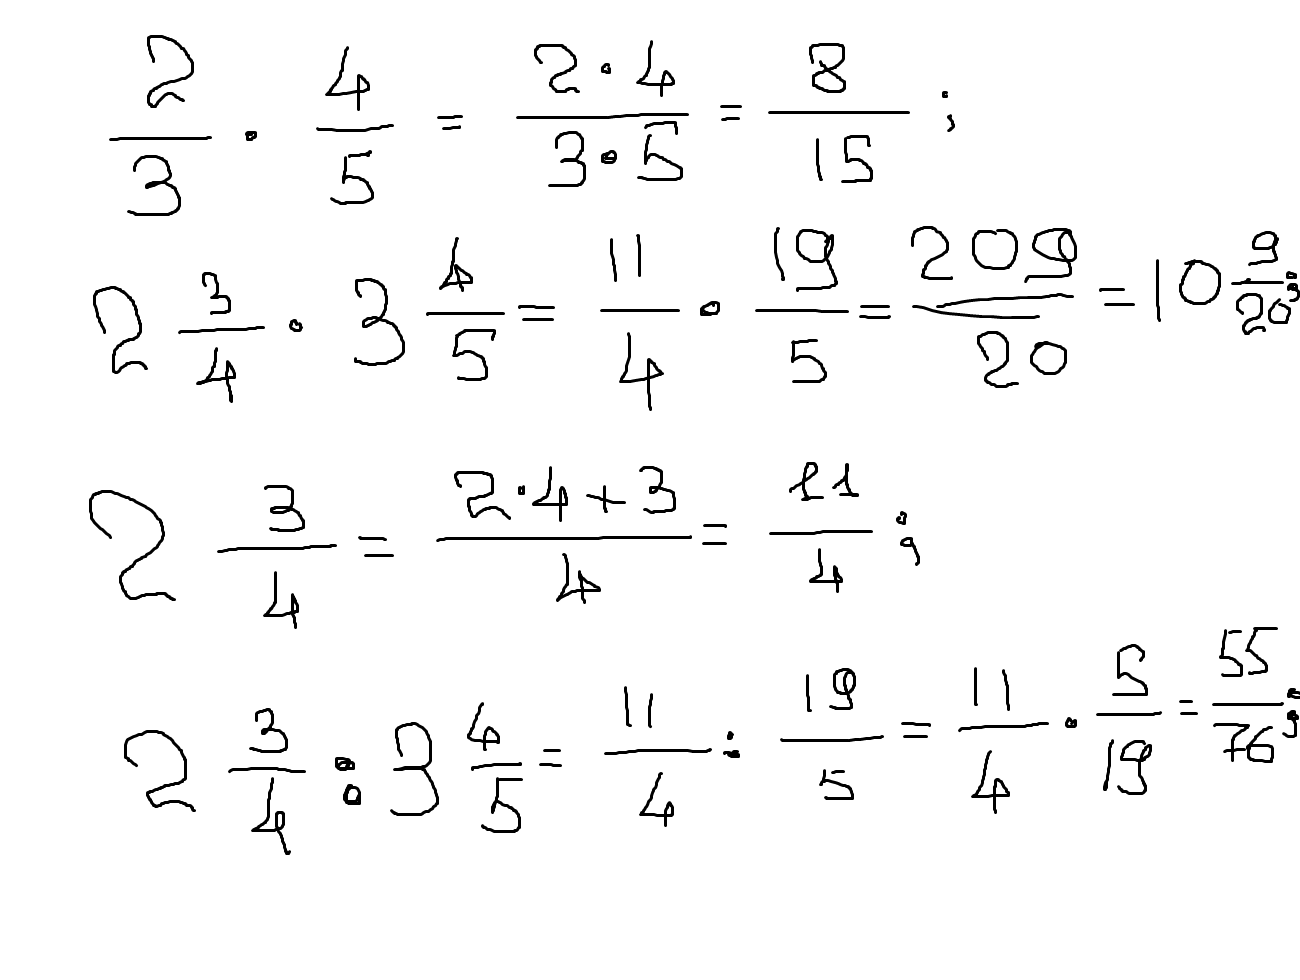 2/3 · 4/5 = 2·4/3·5 = 8/15 ;
2 3/4 · 3 4/5 = 11/4 · 19/5 = 209/20 = 10 9/20 ;
2 3/4 = 2·4+3/4 = 11/4 ;
2 3/4 : 3 4/5 = 11/4 : 19/5 = 11/4 · 5/19 = 55/76 ;